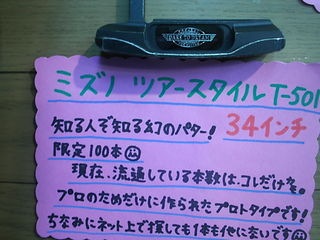 ミズノ ツアースタイル T-501
知る人ぞ知る幻のパター! 34インチ
限定100本
現在、流通している本数は、コレだけ。
プロのためだけに作られたプロトタイプです!
ちなみにネット上で探しても1本も他にないです